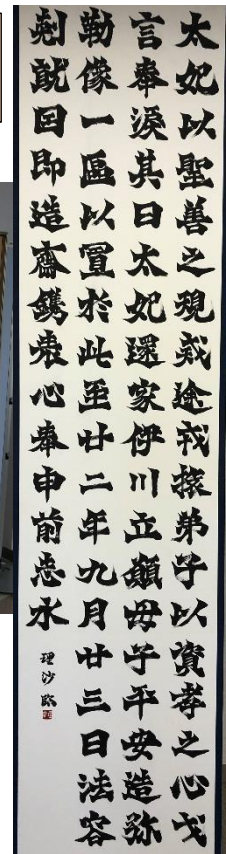 太妃以聖善之規戒途戎旅弟子以資孝之心戈
言奉淚其日太妃還家伊川立願母子平安造弥
勒像一區以置於此至廿二年九月廿三日法容
剋就因即造齋鐫表心奉申前志永
理沙臨